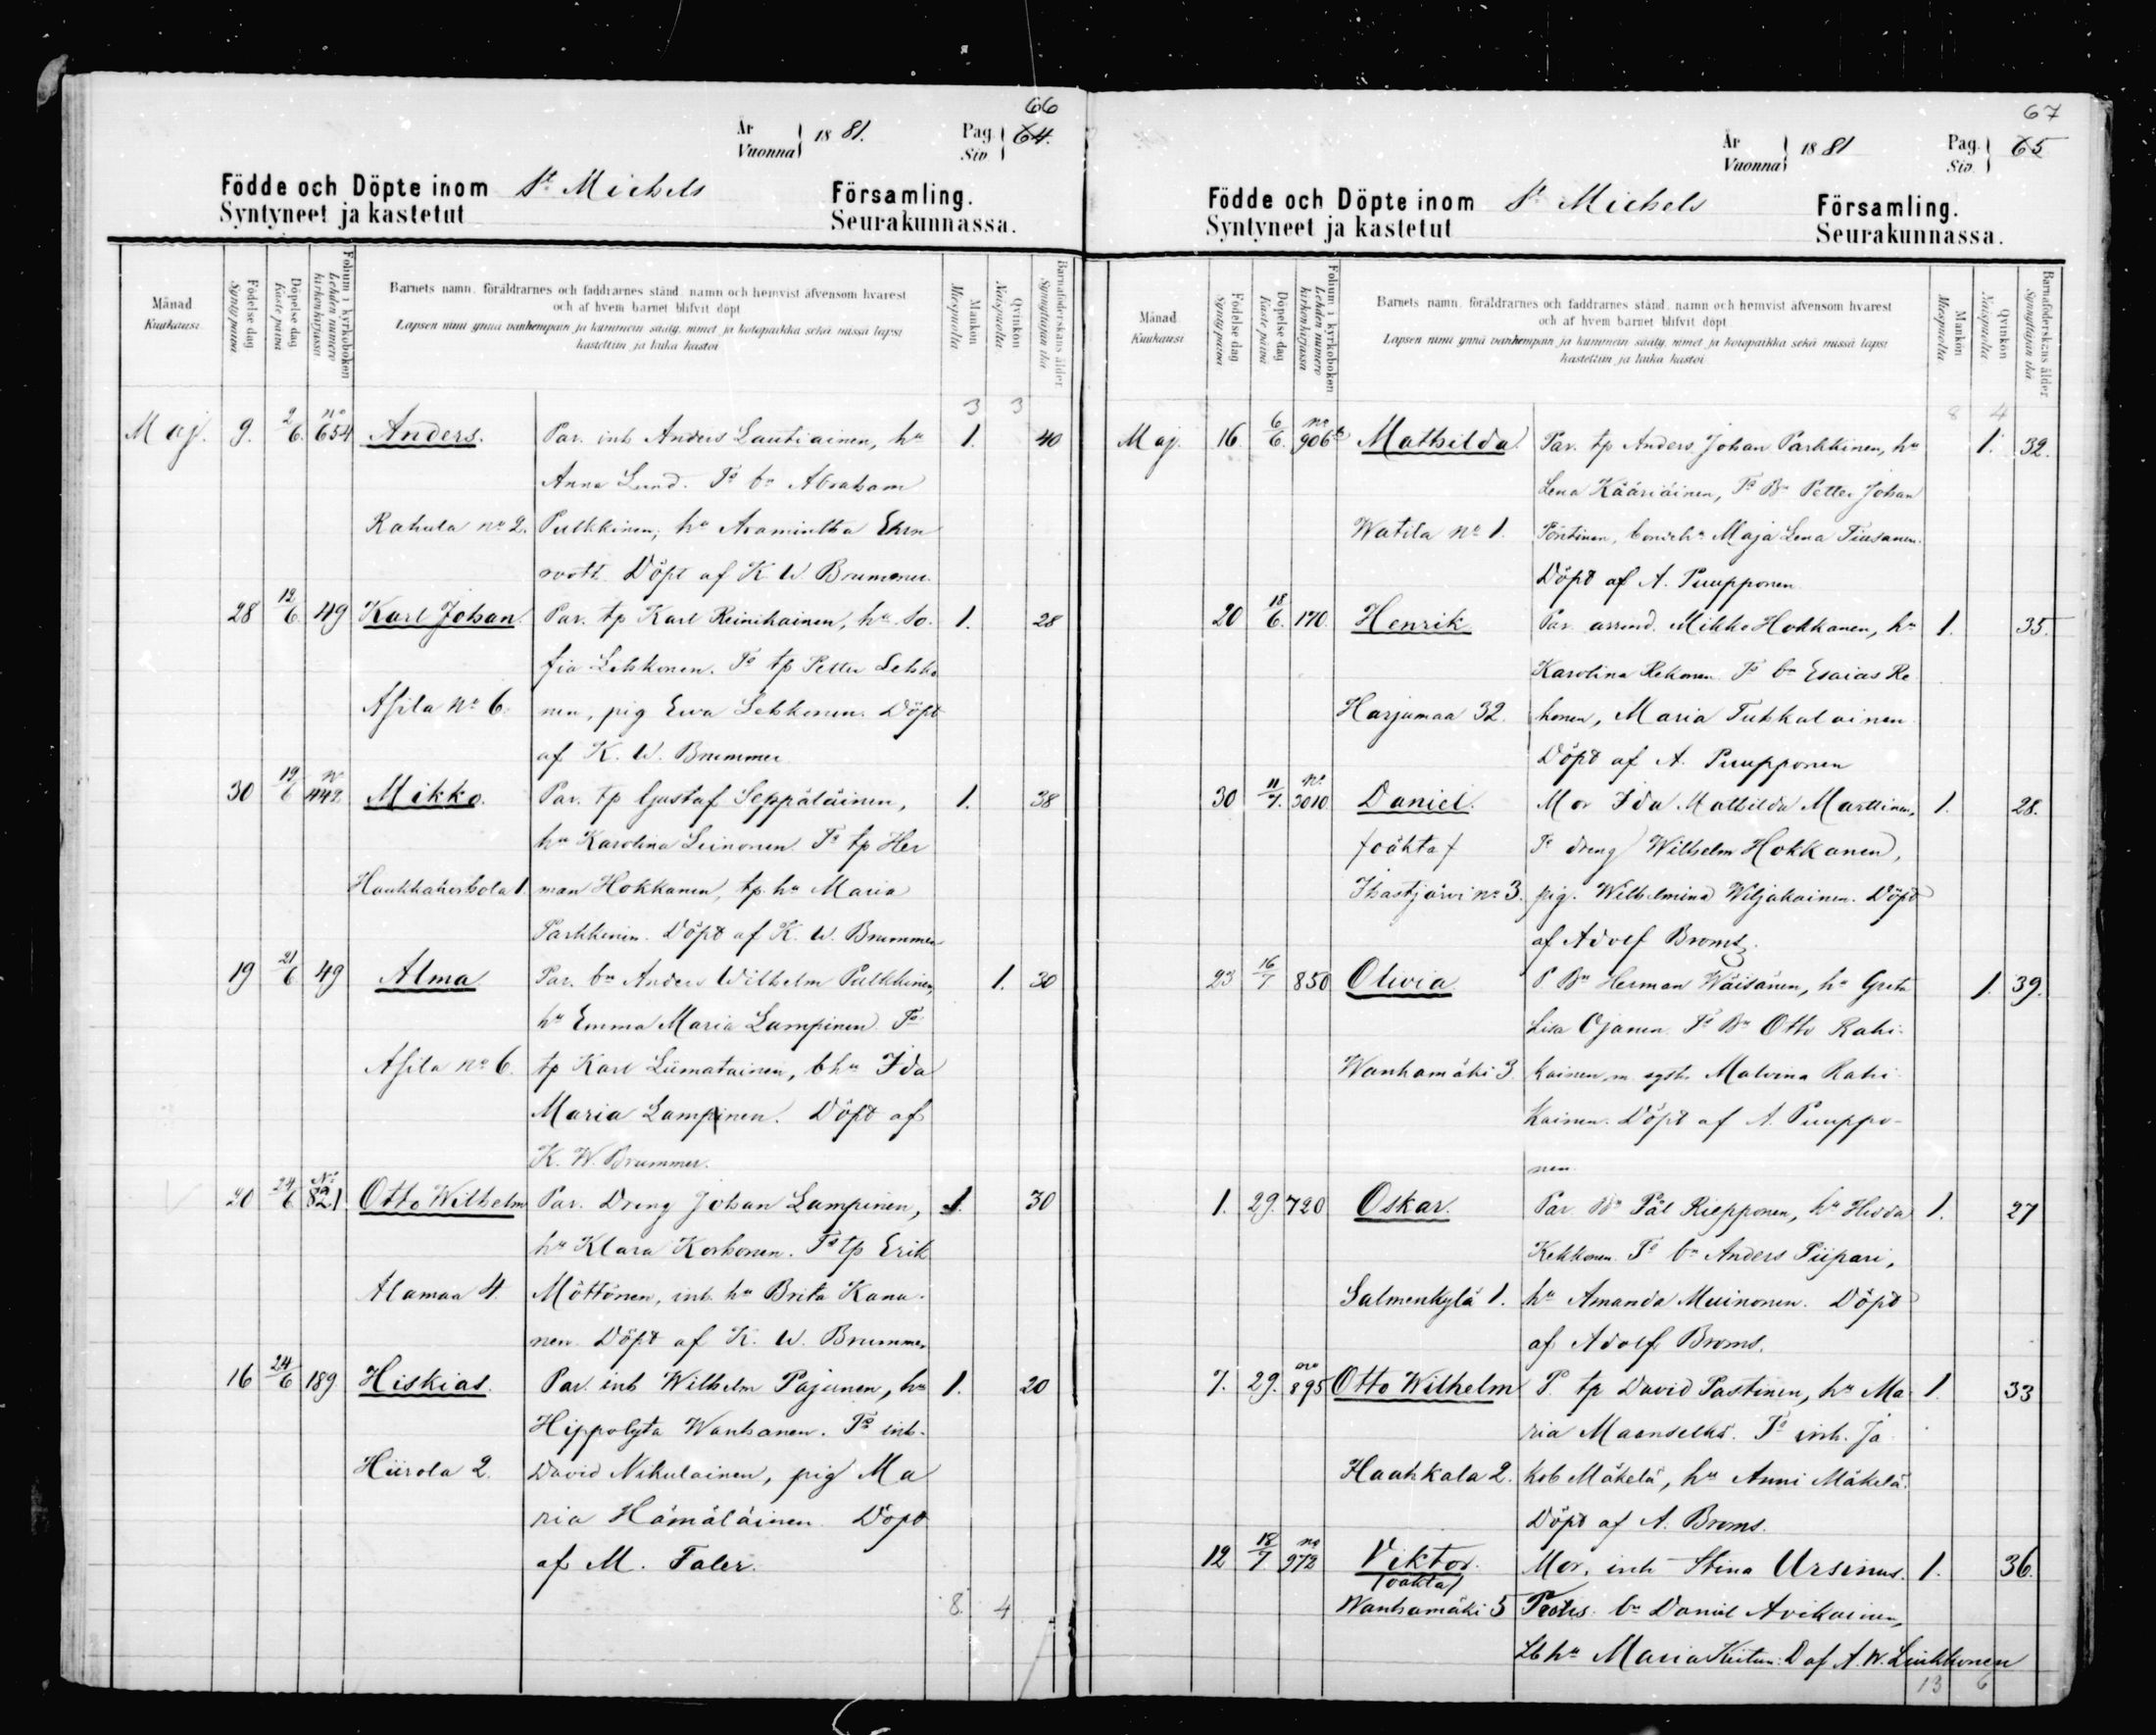 66
År Vuonna 1881. Pag. Siv. 64.
Födde och Döpte inom St Michels Församling.
Syntyneet ja kastetut Seurakunnassa.
Månad Kuukausi
Födelse dag Synty päivä
Döpelse dag Kaste päivä
Folium i kyrkoboken Lehden numero kirkonkirjassa
Barnets namn, föräldrarnes och faddrarnes stånd, namn och hemvist äfvensom hvarest
och af hvem barnet blifvit döpt
Lapsen nimi ynnä vanhempain ja kummein sääty, nimet ja kotopaikka sekä missä lapsi
kastettiin ja kuka kastoi
Mankön Miespuolia
Qvinkön Naispuolia
Barnaföderskans ålder Synnyttäjän ikä
3 3
Maj. 9. 2/6. no 654 Anders. Par. inh Anders Lautiainen, hu 1. 40
Anna Lund. Fs bn Abraham
Rahula no 2. Pulkkinen, hu Aramintha Ehrn
rooth. Döpt af K W Brummer.
28 12/6. 49 Karl Johan. Par. tp Karl Reinikainen, hu So. 1. 28
fia Lehkonen. Fs tp Petter Lehko
Asila No 6. nen, pig Ewa Lehkonen. Döpt
af K. W. Brummer
30 19/6 no 442 Mikko. Par. tp Gustaf Seppäläinen, 1. 38
hu Karolina Leinonen. Fs tp Her
Haukkakorhola 1. man Hokkanen, tp. hu Maria
Parkkinen. Döpt af K. W. Brummer
19 21/6 49 Alma Par. bn Anders Wilhelm Pulkkinen, 1. 30
hu Emma Maria Lampinen Fs
Asila no 6. tp Karl Liimatainen, bhu Ida
Maria Lampinen. Döpt af
K. W. Brummer.
20 24/6 No 821 Otto Wilhelm Par. Dreng Johan Lampinen, 1. 30
hu Klara Korhonen. Fs tp Erik
Alamaa 4. Möttönen, inh. hu Brita Kana.
nen. Döpt af K. W. Brummer
16 24/6 189 Hiskias. Par. inh Wilhelm Pajunen, hu 1. 20
Hippolyta Wanhanen. Fs inh.
Hiirola 2. David Nikulainen, pig Ma
ria Hämäläinen. Döpt
af M. Taler.
8. 4
67
År Vuonna 1881 Pag. Siv. 65
Födde och Döpte inom St Michels Församling.
Syntyneet ja kastetut Seurakunnassa.
Månad Kuukausi
Födelse dag Synty päivä
Döpelse dag Kaste päivä
Folium i kyrkoboken Lehden numero kirkonkirjassa
Barnets namn, föräldrarnes och faddrarnes stånd, namn och hemvist äfvensom hvarest
och af hvem barnet blifvit döpt
Lapsen nimi ynnä vanhempain ja kummein sääty, nimet ja kotopaikka sekä missä lapsi
kastettiin ja kuka kastoi
Mankön Miespuolia
Qvinkön Naispuolia
Barnaföderskans ålder Synnyttäjän ikä
8 4
Maj. 16. 6/6. no 906 Mathilda. Par. tp Anders Johan Parkkinen, hu 1. 32.
Lena Kääriäinen, Fs Bn Petter Johan
Watila no 1. Pöntinen, Maja Lena Tiusanen.
Döpt af A. Puupponen.
20 18/6. 170. Henrik Par. arrend. Mikko Hokkanen, hu 1. 35.
Karolina Rekonen. Fs bn Esaias Re
Harjumaa 32. konen, Maria Tuhkalainen
Döpt af A. Puupponen
30 11/7. no. 3010 Daniel. Mor Ida Mathilda Marttinen, 1. 28.
/oäkta/ Fs dreng Wilhelm Hokkanen,
Ihastjärvi no 3. pig. Wilhelmina Wiljakainen. Döpt
af Adolf Broms.
23 16/7 850 Olivia P Bn Herman Wäisänen, hu Greta 1. 39.
Lisa Ojanen. Fs Bn Otto Rahi-
Wanhamäki 3. kainen, m. syster Malvina Rahi-
kainen. Döpt af A. Puuppo-
nen.
1. 29. 720 Oskar. Par Bn Pål Riepponen, hu Hedda 1. 27
Kekkonen. Fs bn Anders Piipari,
Salmenkylä 1. hu Amanda Muinonen. Döpt
af Adolf Broms.
7. 29. no 895 Otto Wilhelm P. tp David Pastinen, hu Ma 1. 33
ria Maenselkä. Fs inh. Ja
Haukkala 2. kob Mäkelä, hu Anni Mäkelä.
Döpt af A. Broms.
12 18/7. no 972 Viktor. Mor. inh Stina Ursinus. 1. 36.
/oäkta/
Wanhamäki 5 Testes. bn Daniel Avikainen,
Lb hu Maria Kiitun: D af A. W. Liukkonen
13 6